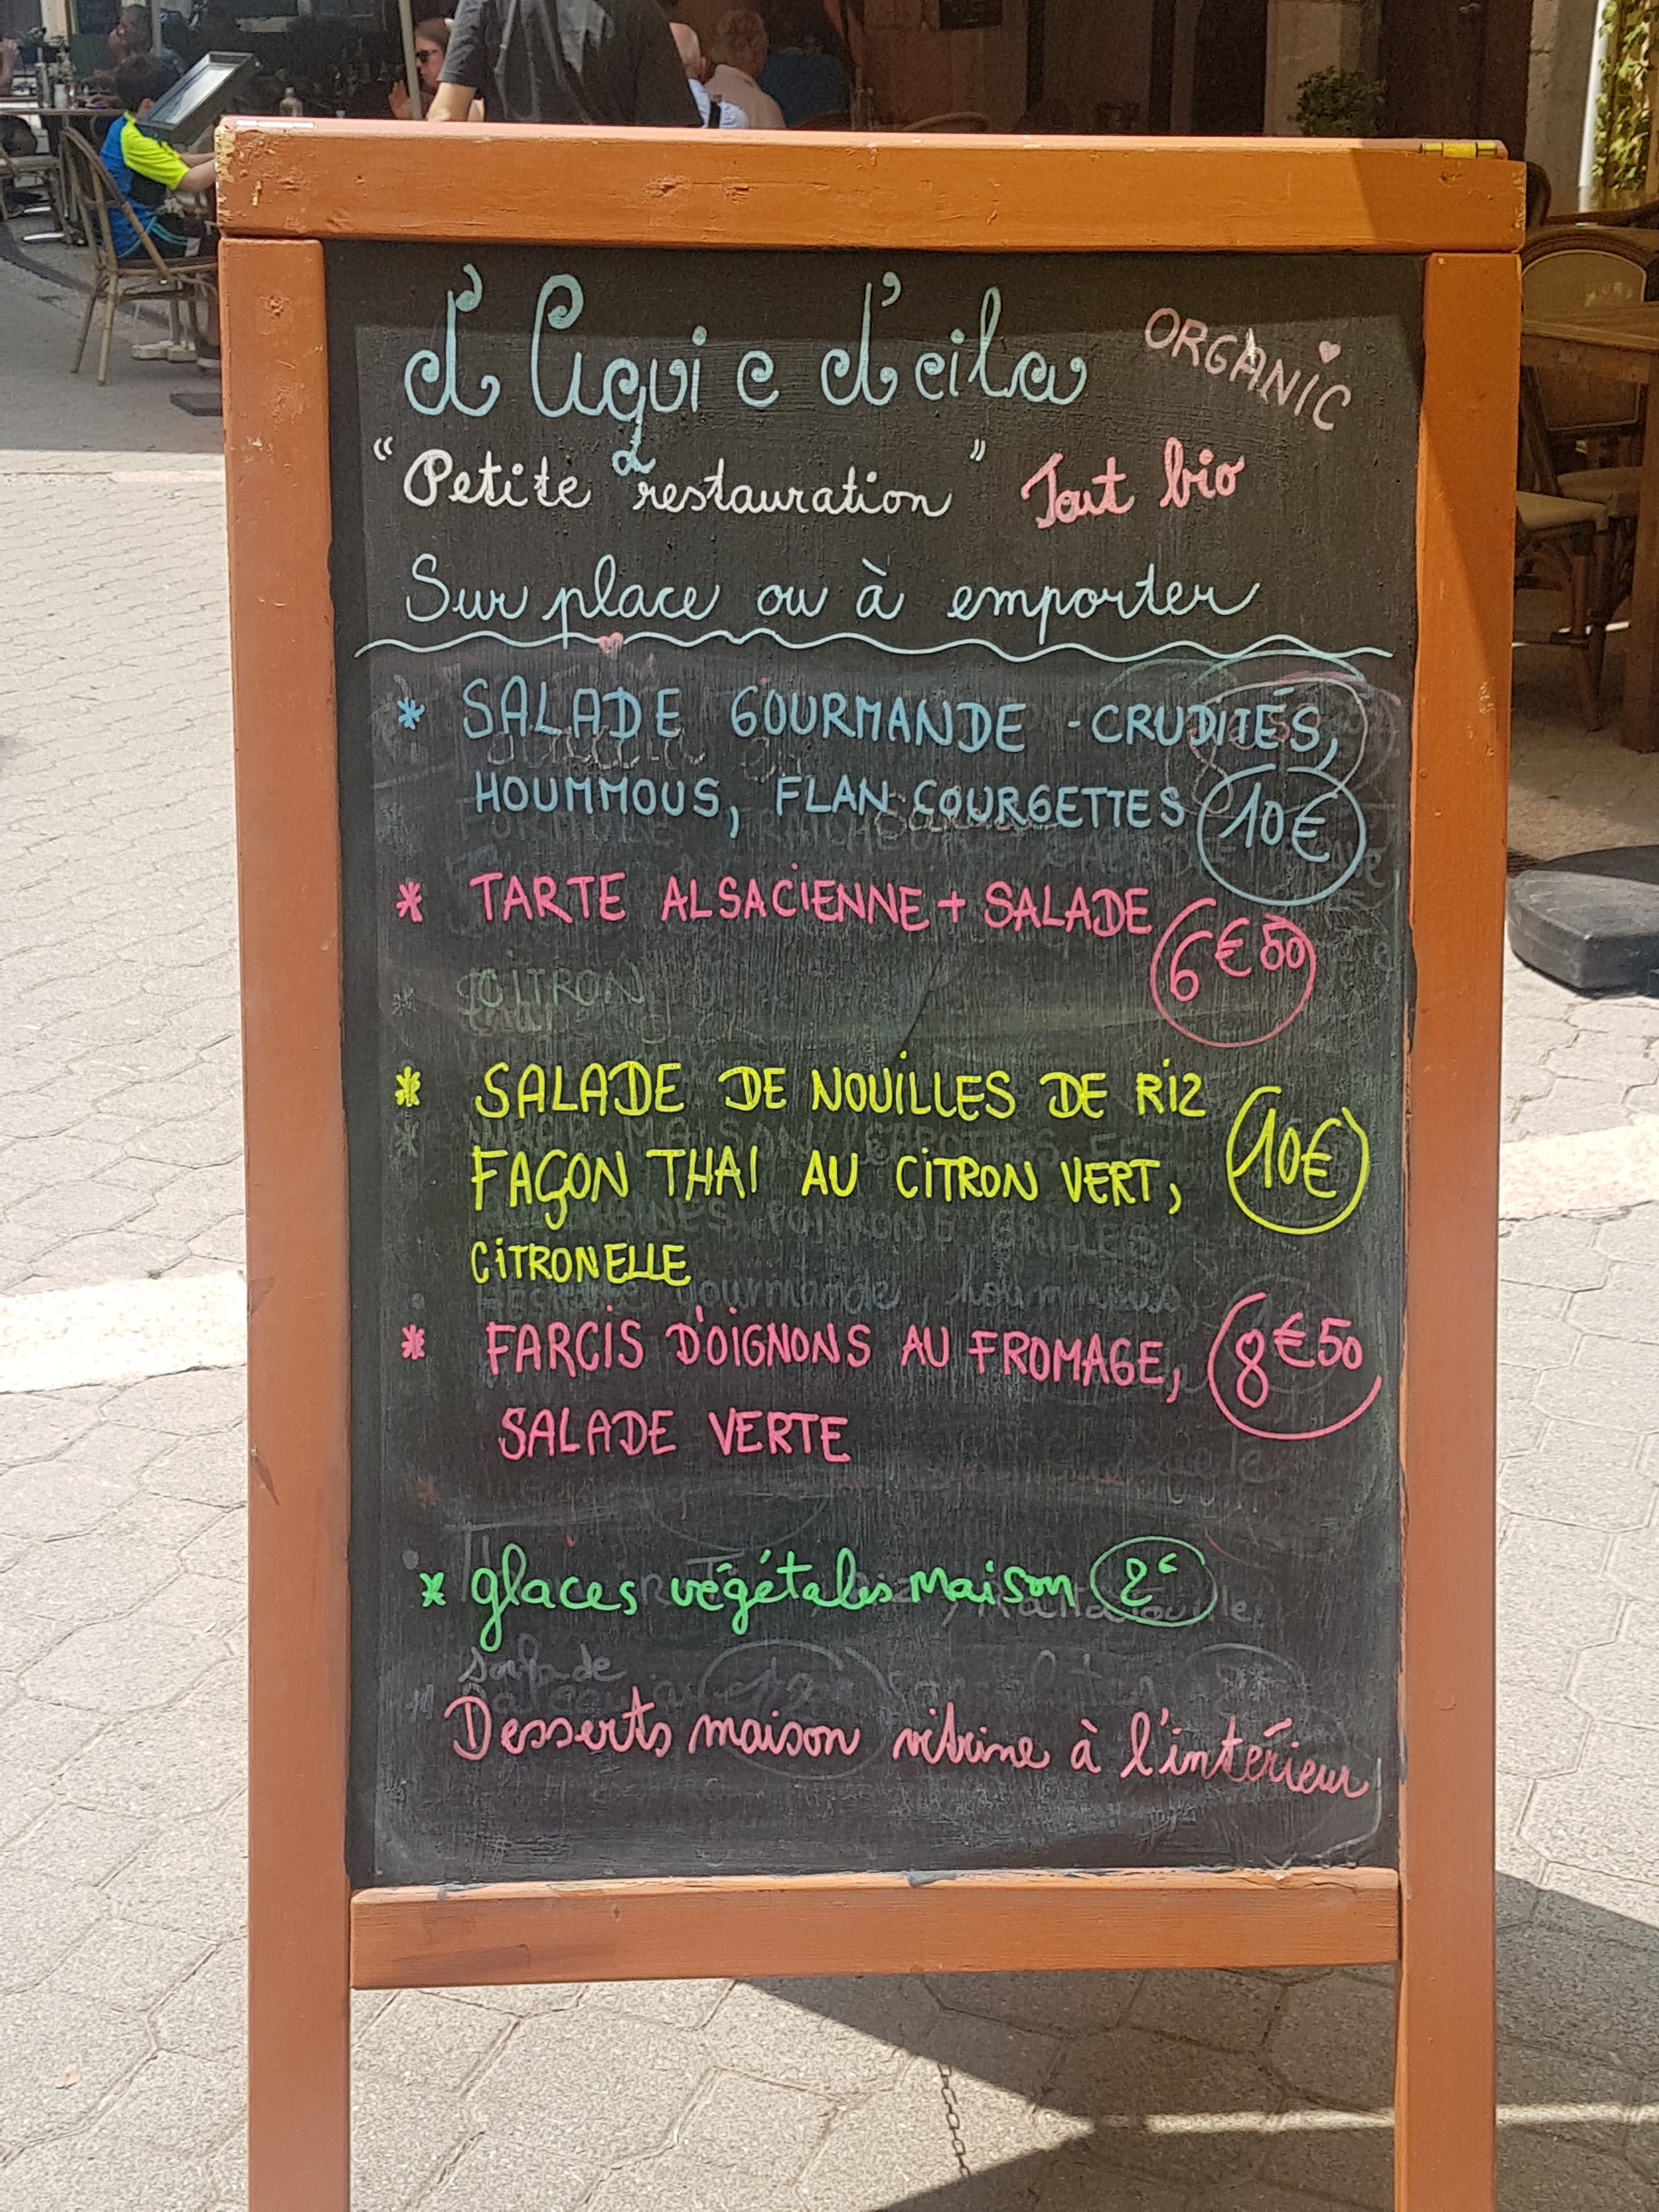 d'Aqui e d'eila
ORGANIC
"Petite restauration" Tout bio
Sur place ou à emporter
* SALADE GOURMANDE - CRUDITÉS,
HOUMMOUS, FLAN COURGETTES 10€
* TARTE ALSACIENNE + SALADE
6€50
CITRON
* SALADE DE NOUILLES DE RIZ
FAÇON THAI AU CITRON VERT, 10€
CITRONELLE
* FARCIS D'OIGNONS AU FROMAGE, 8€50
SALADE VERTE
* glaces végétales maison 2€
Desserts maison vitrine à l'intérieur